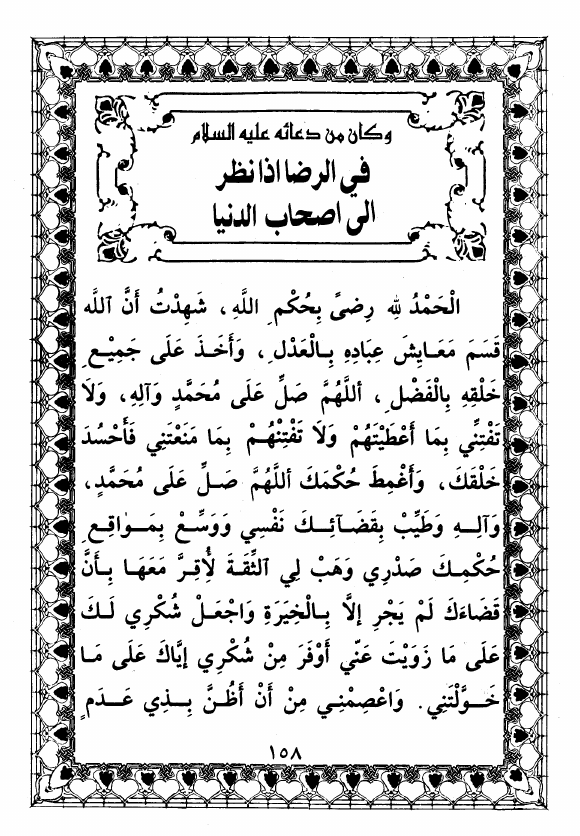 وكان من دعائه عليه السلام
في الرضا اذا نظر
الى اصحاب الدنيا
الْحَمْدُ لِلهِ رِضىً بِحُكْمِ اللَّهِ، شَهِدْتُ أَنَّ ٱللَّه
قَسَمَ مَعَـايِشَ عِبَادِهِ بِـالْعَدْلِ، وَأَخَـذَ عَلَى جَمِيْعِ
خَلْقِهِ بِالْفَضْلِ، أللَّهُمَّ صَلِّ عَلَى مُحَمَّدٍ وَآلِهِ، وَلَا
تَفْتِنِّي بِمَا أَعْطَيْتَهُمْ وَلَا تَفْتِنْهُـمْ بِمَا مَنَعْتَنِي فَأَحْسُدَ
خَلْقَكَ، وَأَغْمِطَ حُكْمَكَ أللَّهُمَّ صَـلِّ عَلَى مُحَمَّدٍ،
وَآلِـهِ وَطَيِّبْ بِقَضَـآئِـكَ نَفْسِي وَوَسِّعْ بِمَـوٰاقِعِ
حُكْمِـكَ صَدْرِي وَهَبْ لِي ٱلثِّقَةَ لِأُقِرَّ مَعَهَـا بِـأَنَّ
قَضَاءَكَ لَمْ يَجْرِ إلَّا بِـالْخِيَرَةِ وَاجْعَلْ شُكْرِي لَـكَ
عَلَى مَا زَوَيْتَ عَنّي أَوْفَرَ مِنْ شُكْرِي إيَّاكَ عَلَى مَـا
خَـوَّلْتَنِي. وَاعْصِمْنِـي مِنْ أَنْ أَظُـنَّ بِـذِي عَـدَمٍ
١٥٨